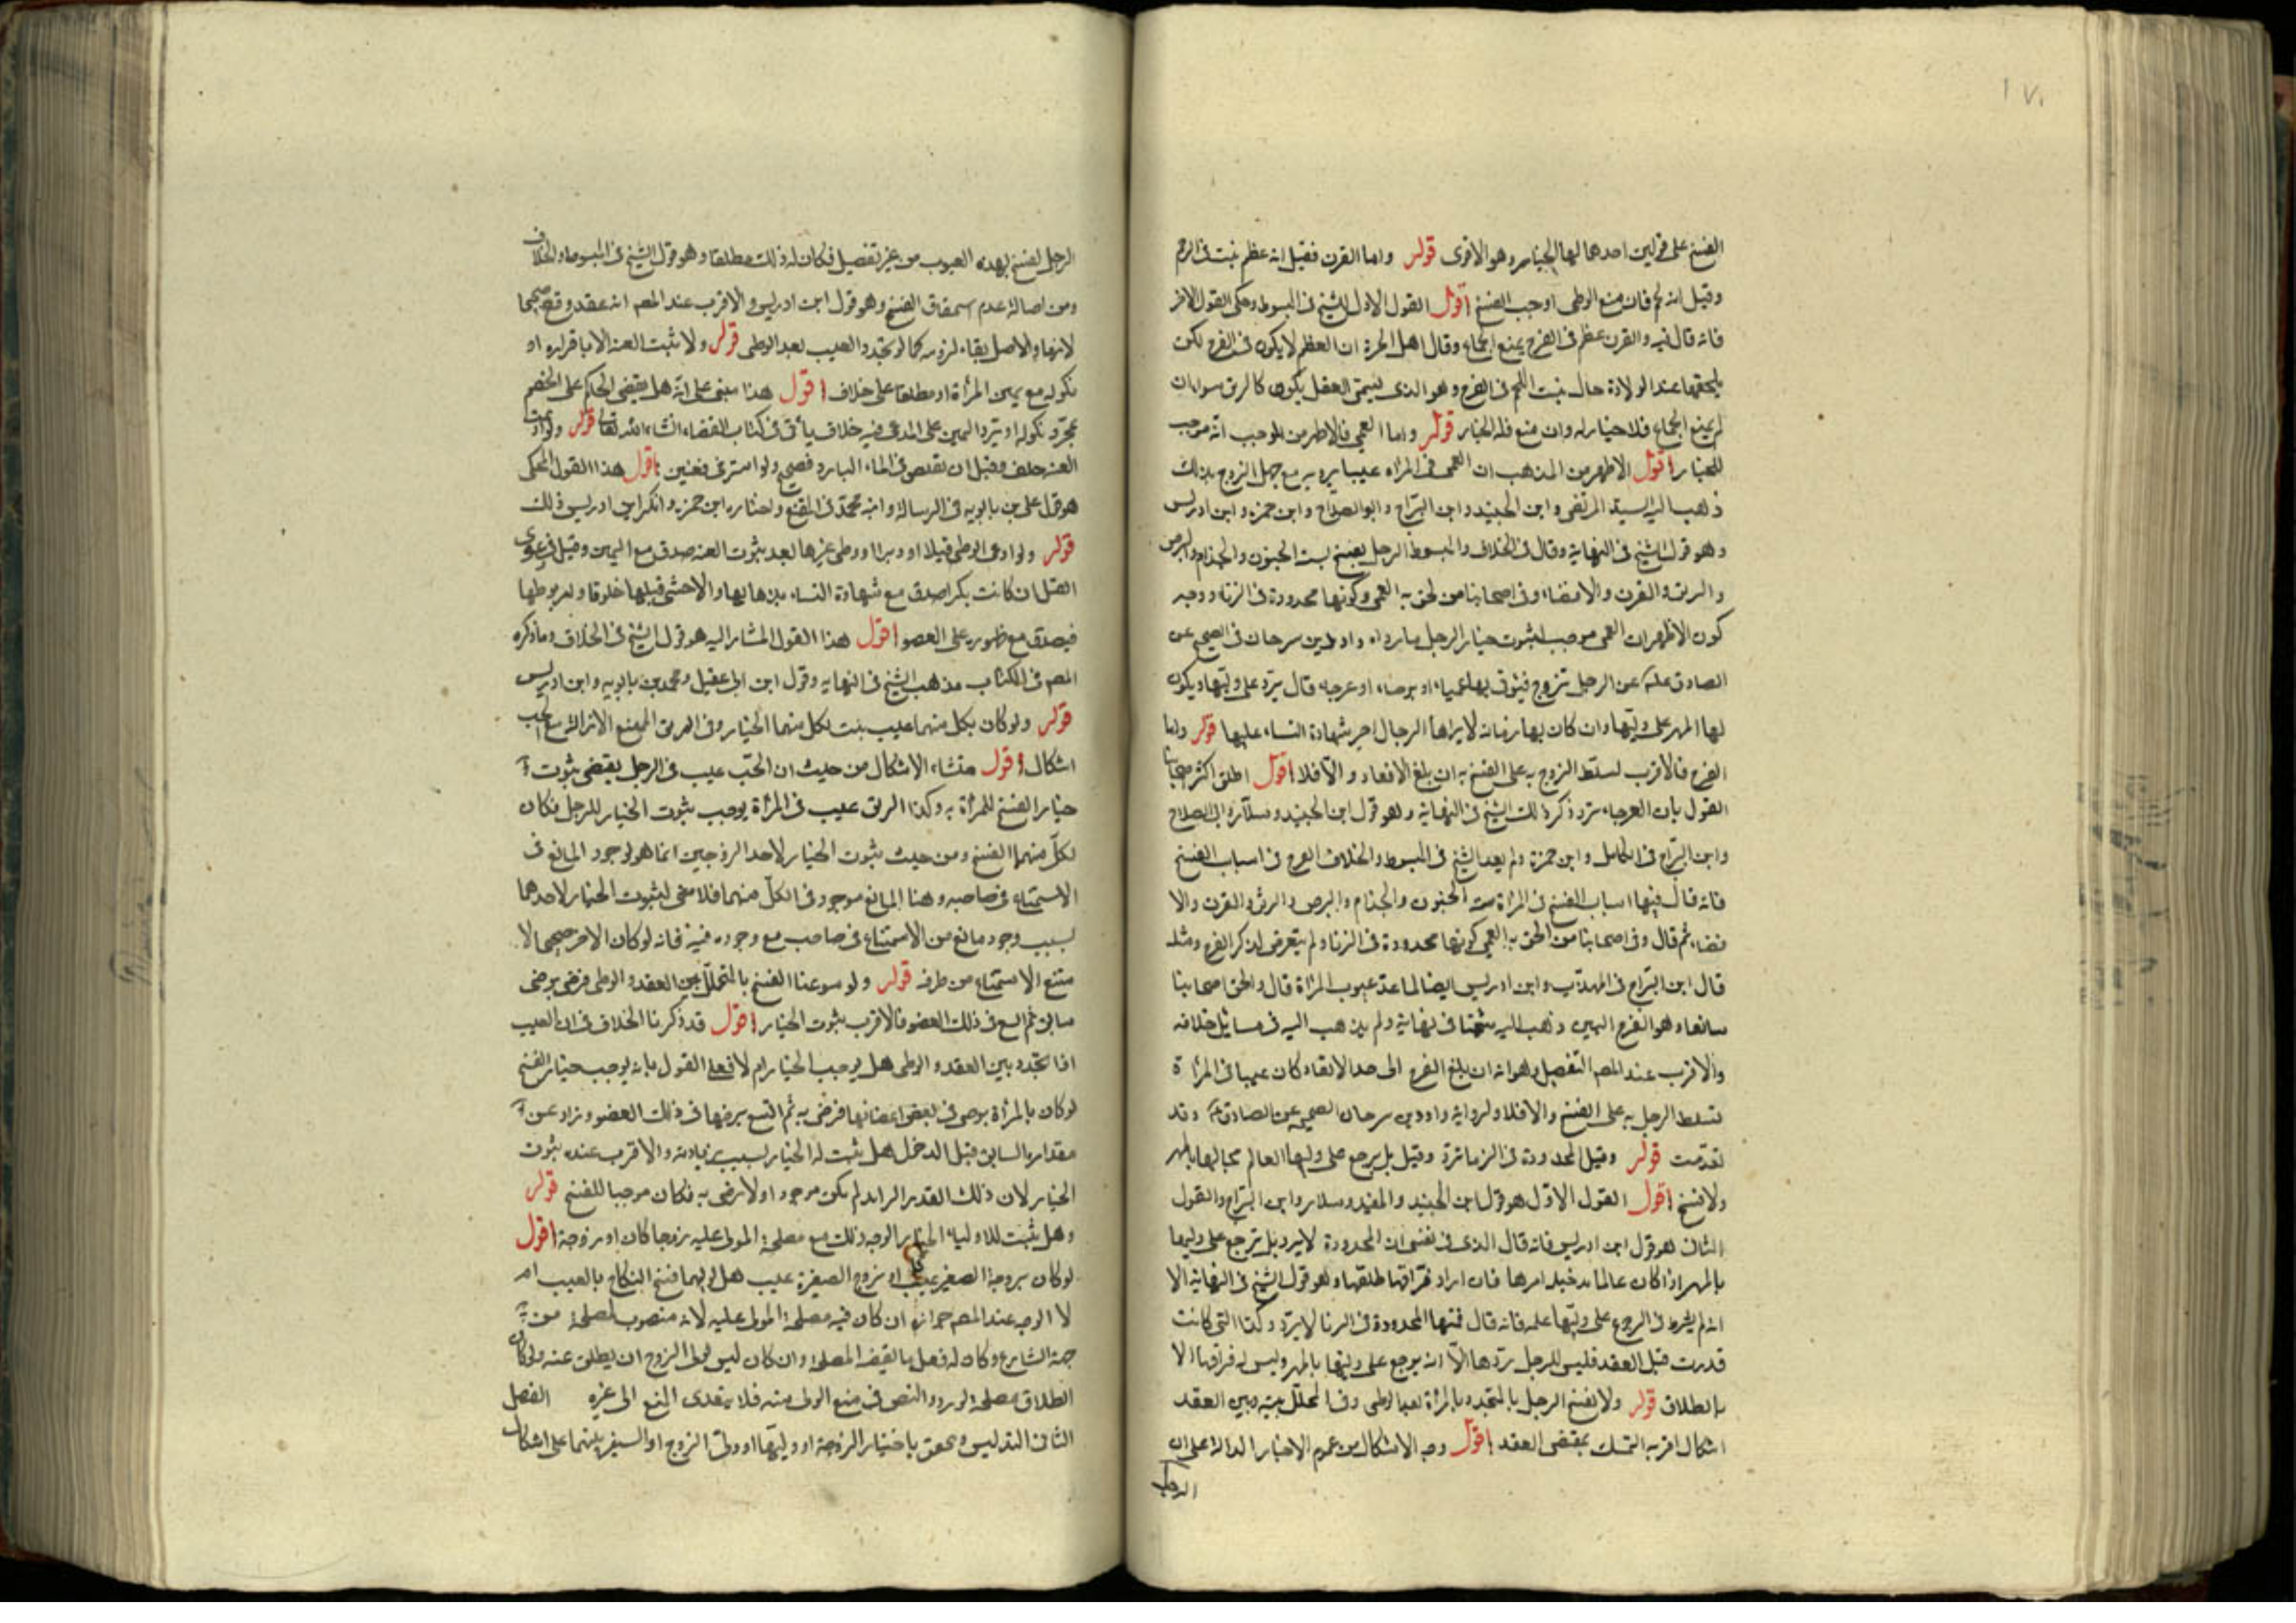 ١٧١
الفسخ على قولين احدهما لها الخيار وهو الاقوى قوله واما القرن فقيل انه عظم نبت فى الرحم
وقيل انه لحم فان منع الوطى اوجب الفسخ اقول القول الاول للشيخ فى المبسوط وحكى القول الاخر
فانه قال فيه والقرن عظم فى الفرج يمنع الجماع وقال اهل الخبرة ان العظم لا يكون فى الفرج لكن
يلحقها عند الولادة حال نبت اللحم فى الفرج وهو الذى يسمى العفل يكون كالرتق سواء فان
لم يمنع الجماع فلا خيار له وان منع فله الخيار قوله واما العمى فالاظهر من المذهب انه موجب
للخيار اقول الاظهر من المذهب ان العمى فى المراه عيب يرد به مع جهل الزوج بذلك
ذهب اليه السيد المرتضى وابن الجنيد وابن البراج وابو الصلاح وابن حمزه وابن ادريس
وهو قول الشيخ فى النهاية وقال فى الخلاف والمبسوط الرجل يفسخ بستة الجنون والجذام والبرص
والرتق والقرن والافضاء وفى اصحابنا من لحق به العمى وكونها محدودة فى الزنا ووجه
كون الاظهر ان العمى موجب لثبوت خيار الرجل ما رواه داود بن سرحان فى الصحيح عن
الصادق عن الرجل تزوج فيؤتى بها عمياء او برصاء او عرجاء قال ترد على وليها ويكون
لها المهر على وليها وان كان بها زمانة لا يراها الرجال اجيز شهادة النساء عليها قوله واما
العرج فالاقرب تسلط الزوج به على الفسخ به ان بلغ الاقعاد والا فلا اقول اطلق اكثر اصحابنا
القول بان العرجاء ترد ذكر ذلك الشيخ فى النهاية وهو قول ابن الجنيد وسلار وابى الصلاح
وابن البراج فى الكامل وابن حمزة ولم يعد الشيخ فى المبسوط والخلاف العرج فى اسباب الفسخ
فانه قال فيها اسباب الفسخ فى المراة ستة الجنون والجذام والبرص والرتق والقرن والا
فضاء ثم قال وفى اصحابنا من الحق به العمى كونها محدودة فى الزنا ولم يتعرض لذكر العرج ومثله
قال ابن البراج فى المهذب وابن ادريس ايضا لما عد عيوب المرأة قال والحق اصحابنا
سابعا وهو العرج البين وذهب اليه شيخنا فى نهايته ولم يذهب اليه فى مسائل خلافه
والاقرب عند المصـ التفصيل وهو انه ان بلغ العرج الى حد الاقعاد كان عيبا فى المرأة
تسلط الرجل به على الفسخ والا فلا ولرواية داود بن سرحان الصحيحة عن الصادق وقد
تقدمت قوله وقيل المحدودة فى الزنا ترد وقيل بل يرجع على وليها العالم بحالها بالمهر
ولا فسخ اقول القول الاول هو قول ابن الجنيد والمفيد وسلار وابن البراج والقول
الثانى هو قول ابن ادريس فانه قال الذى فى نفسى ان المحدودة لا يرد بل يرجع على وليها
بالمهر اذا كان عالما بدخيلة امرها فان اراد فراقها طلقها وهو قول الشيخ فى النهاية الا
انه لم يشرط فى الرجوع على وليها علمه فانه قال فيها المحدودة فى الزنا لا ترد وكذا التى كانت
قد زنت قبل العقد فليس للرجل ردها الا انه يرجع على وليها بالمهر وليس له فراقها الا
بالطلاق قوله ولا يفسخ الرجل بالمتجدد بالمرأة بعد الوطى وفى المتخلل بينه وبين العقد
اشكال اقربه التمسك بمقتضى العقد اقول وجه الاشكال من عموم الاخبار الدالة على ان
الرجل
الرجل يفسخ بهذه العيوب من غير تفصيل فكان له ذلك مطلقا وهو قول الشيخ فى المبسوط والخلاف
ومن اصالة عدم استحقاق الفسخ وهو قول ابن ادريس والاقرب عند المصـ انه عقد وقع صحيحا
لازما والاصل بقاء لزومه كما لو تجدد العيب بعد الوطى قوله ولا يثبت العنة الا باقراره او
نكوله مع يمين المرأة او مطلقا على خلاف اقول هذا مبنى على انه هل يقضى الحاكم على الخصم
بمجرد نكوله او يرد اليمين على المدعى فيه خلاف يأتى فى كتاب القضاء انشاء الله تعالى قوله ولو ادعت
العنة حلف وقيل ان تقلص فى الماء البارد فصحيح ولو استرخى فعنين اقول هذا القول المحكى
هو قول على بن بابويه فى الرسالة وابنه محمد فى المقنع واختاره ابن حمزه وانكر ابن ادريس ذلك
قوله ولو ادعى الوطى قبلا او دبرا او وطى غيرها بعد ثبوت العنة صدق مع اليمين وقيل فى دعوى
القبل ان كانت بكرا صدق مع شهادة النساء بذهابها والا حشى قبلها خلوقا وامر بوطيها
فيصدق مع ظهوره على العضو اقول هذا القول المشار اليه هو قول الشيخ فى الخلاف وما ذكره
المصـ فى الكتاب مذهب الشيخ فى النهاية وقول ابن ابى عقيل ومحمد بن بابويه وابن ادريس
قوله ولو كان بكل منهما عيب يثبت لكل منهما الخيار وفى الرتق الممتنع الازالة مع الجب
اشكال اقول منشاء الاشكال من حيث ان الجب عيب فى الرجل يقتضى ثبوت
خيار الفسخ للمرأة به وكذا الرتق عيب فى المرأة يوجب ثبوت الخيار للرجل فكان
لكل منهما الفسخ ومن حيث ثبوت الخيار لاحد الزوجين انما هو لوجود المانع فى
الاستمتاع فى صاحبه وهنا المانع موجود فى الكل منهما فلا معنى لثبوت الخيار لاحدهما
بسبب وجود مانع من الاستمتاع فى صاحبه مع وجوده فيه فانه لو كان الاخر صحيحا لا
متنع الاستمتاع من طرفه قوله ولو سوغنا الفسخ بالمتخلل بين العقد والوطى فرضى ببرص
سابق ثم اتسع فى ذلك العضو فالاقرب ثبوت الخيار اقول قد ذكرنا الخلاف فى ان العيب
اذا تجدد بين العقد والوطى هل يوجب الخيار ام لا فعلى القول بانه يوجب خيار الفسخ
لو كان بالمرأة برص فى بعض اعضائها فرضى به ثم اتسع برصها فى ذلك العضو وزاد عن
مقداره السابق قبل الدخول هل يثبت له الخيار بسبب زيادته والاقرب عنده ثبوت
الخيار لان ذلك القدر الزايد لم يكن موجودا ولا رضى به فكان موجبا للفسخ قوله
وهل يثبت للاولياء الخيار الوجه ذلك مع مصلحة المولى عليه زوجا كان او زوجة اقول
لو كان بزوجة الصغير عيب او بزوج الصغيرة عيب هل لوليهما فسخ النكاح بالعيب ام
لا الوجه عند المصـ جوازه ان كان فيه مصلحة المولى عليه لانه منصوب لمصلحة من
جهة الشارع وكان له فعل ما يقتضيه المصلحة وان كان ليس لولى الزوج ان يطلق عنه ولو كان
الطلاق مصلحة لورود النص فى منع الولى منه فلا يتعدى المنع الى غيره الفصل
الثانى التدليس ويتحقق باخبار الزوجة او وليها او ولى الزوج او السفير بينهما على اشكال